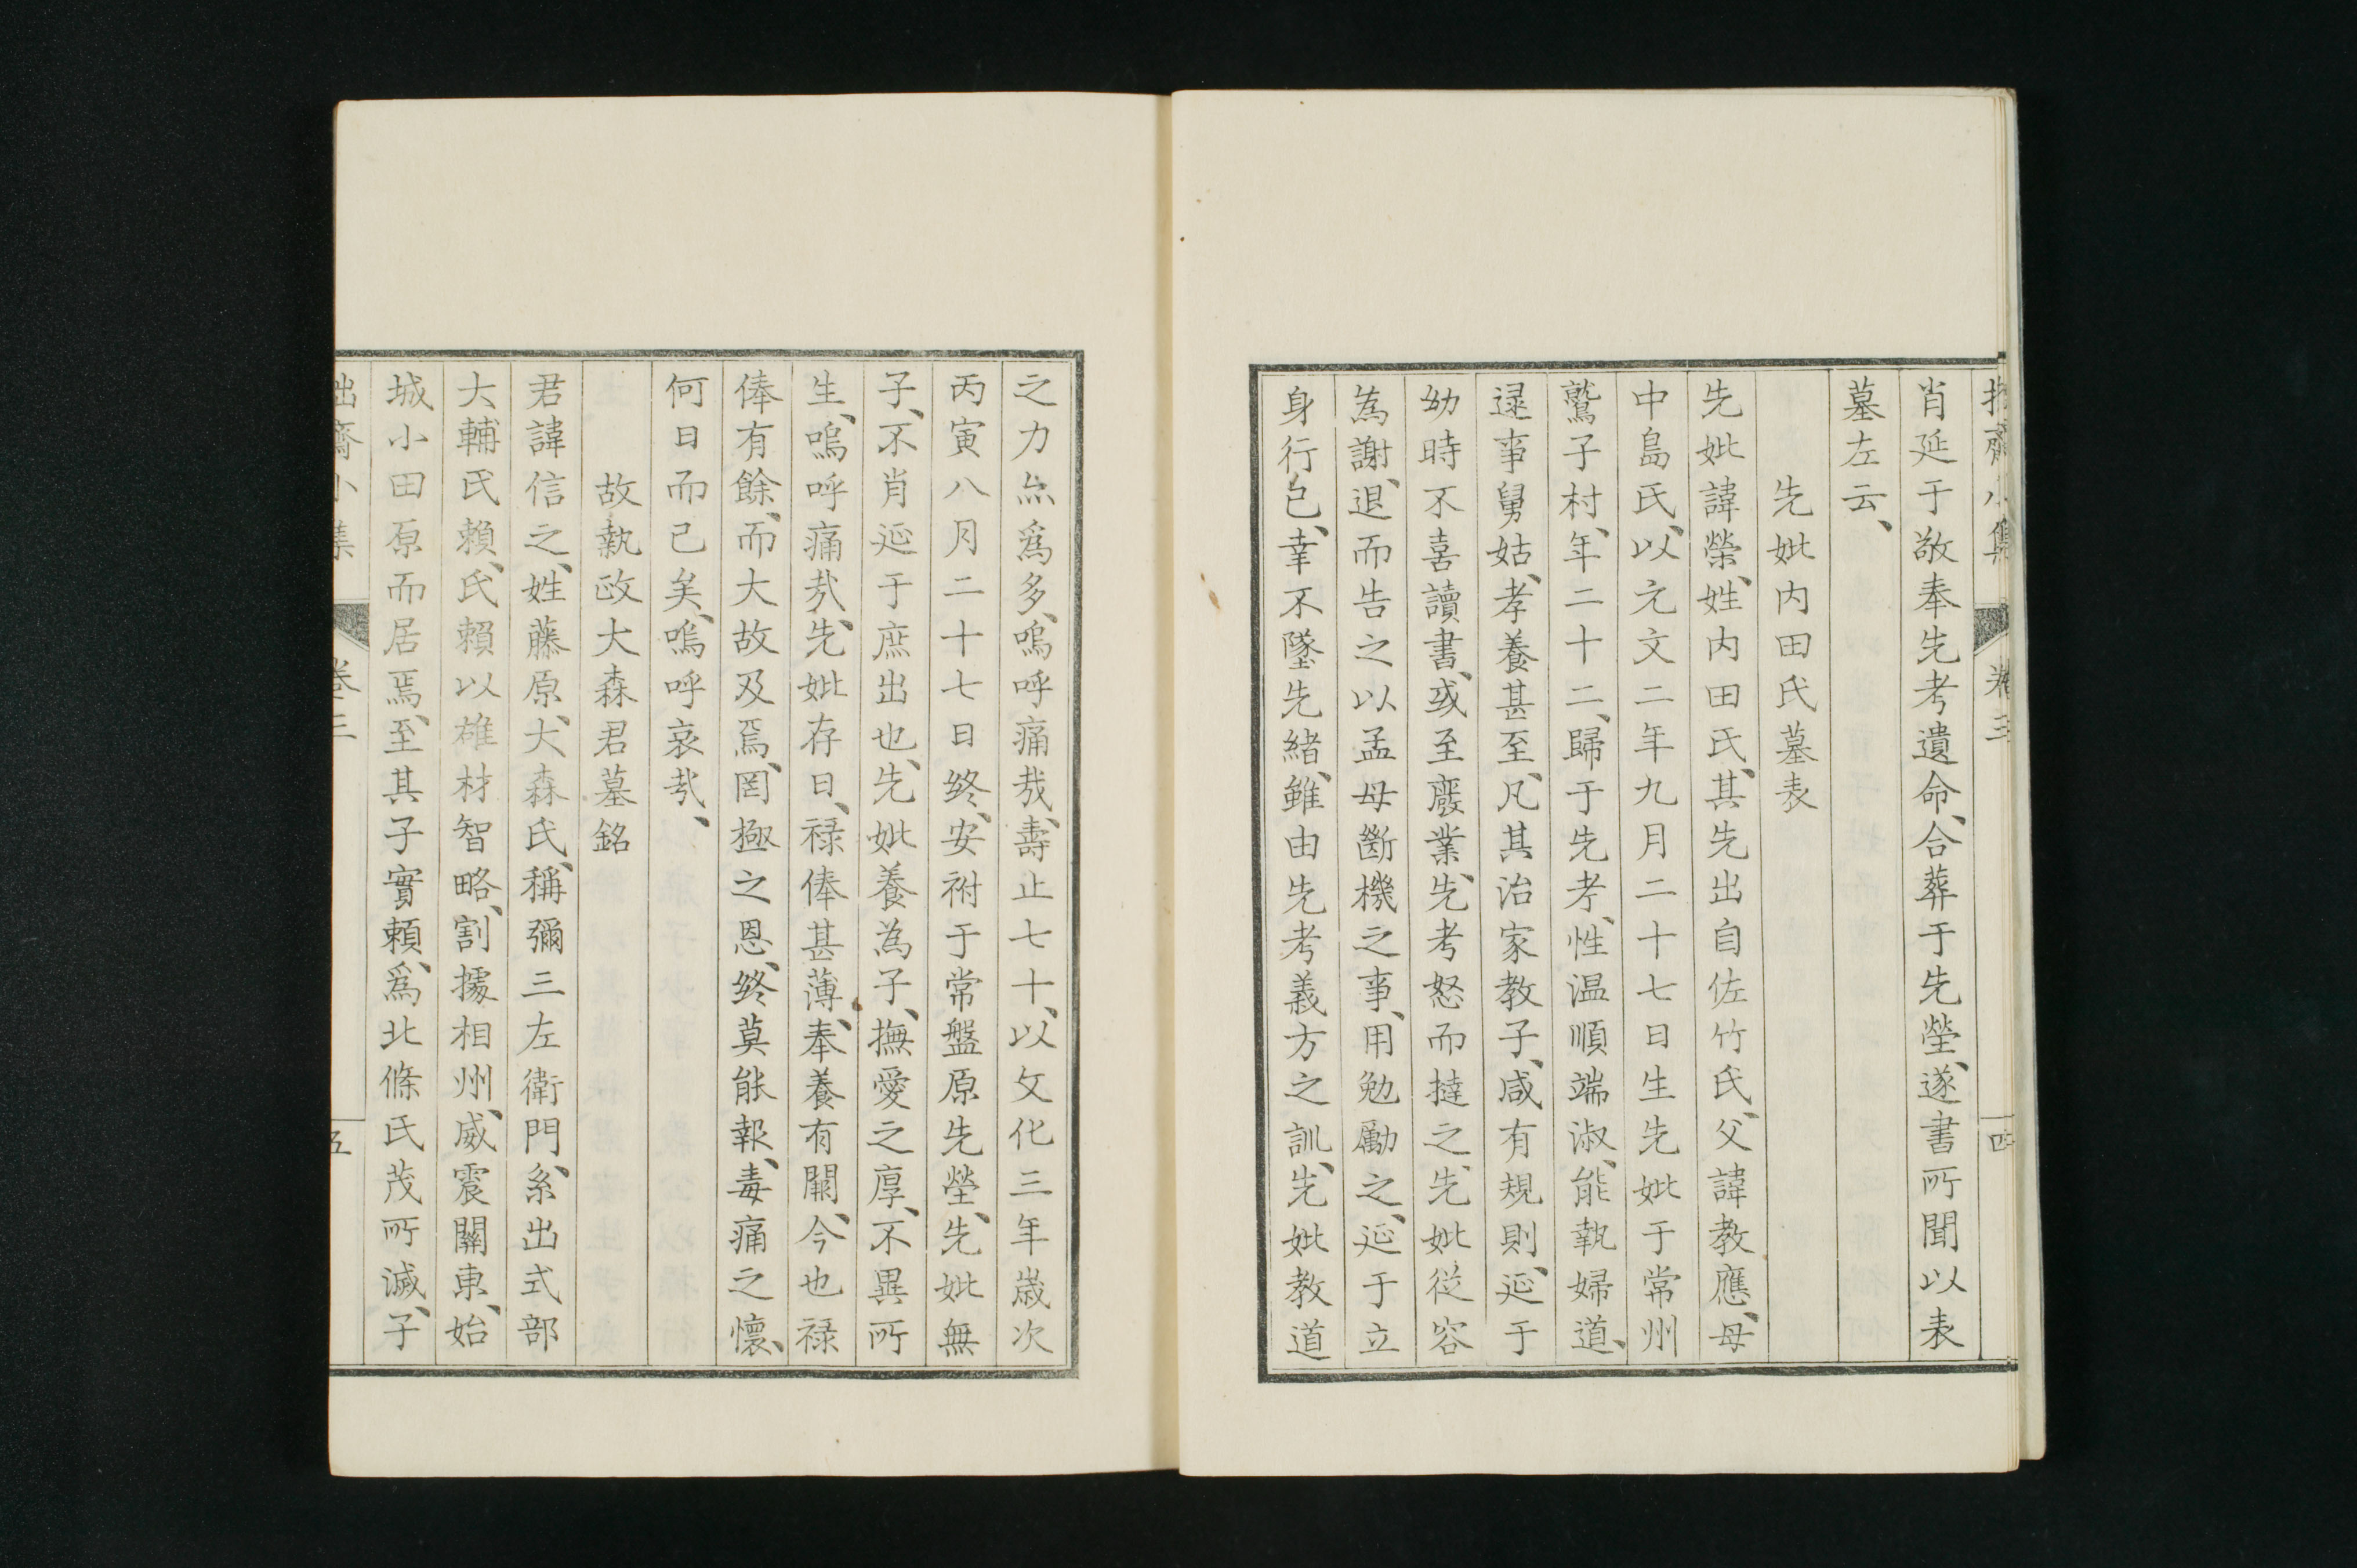 拙齋小集 卷三 四
肖延于敬奉先考遺命、合葬于先塋、遂書所聞以表
墓左云、
先妣内田氏墓表
先妣諱榮、姓内田氏、其先出自佐竹氏、父諱教應、母
中島氏、以元文二年九月二十七日生先妣于常州
鷲子村、年二十二、歸于先考、性温順端淑、能執婦道、
逮事舅姑、孝養甚至、凡其治家教子、咸有規則、延于
幼時不喜讀書、或至廢業、先考怒而撻之、先妣從容
為謝、退而告之以孟母斷機之事、用勉勵之、延于立
身行己、幸不墜先緒、雖由先考義方之訓、先妣教道
之力烝爲多、嗚呼痛哉、壽止七十、以文化三年歲次
丙寅八月二十七日終、安祔于常盤原先塋、先妣無
子、不肖延于庶出也、先妣養為子、撫愛之厚、不異所
生、嗚呼痛哉、先妣存日、禄俸甚薄、奉養有闕、今也禄
俸有餘、而大故及焉、罔極之恩、終莫能報、毒痛之懷、
何日而已矣、嗚呼哀哉、
故執政大森君墓銘
君諱信之、姓藤原、大森氏、稱彌三左衛門、系出式部
大輔氏賴、氏賴以雄材智略、割據相州、威震關東、始
城小田原而居焉、至其子實賴、爲北條氏茂所滅、子
拙齋小集 卷三 五